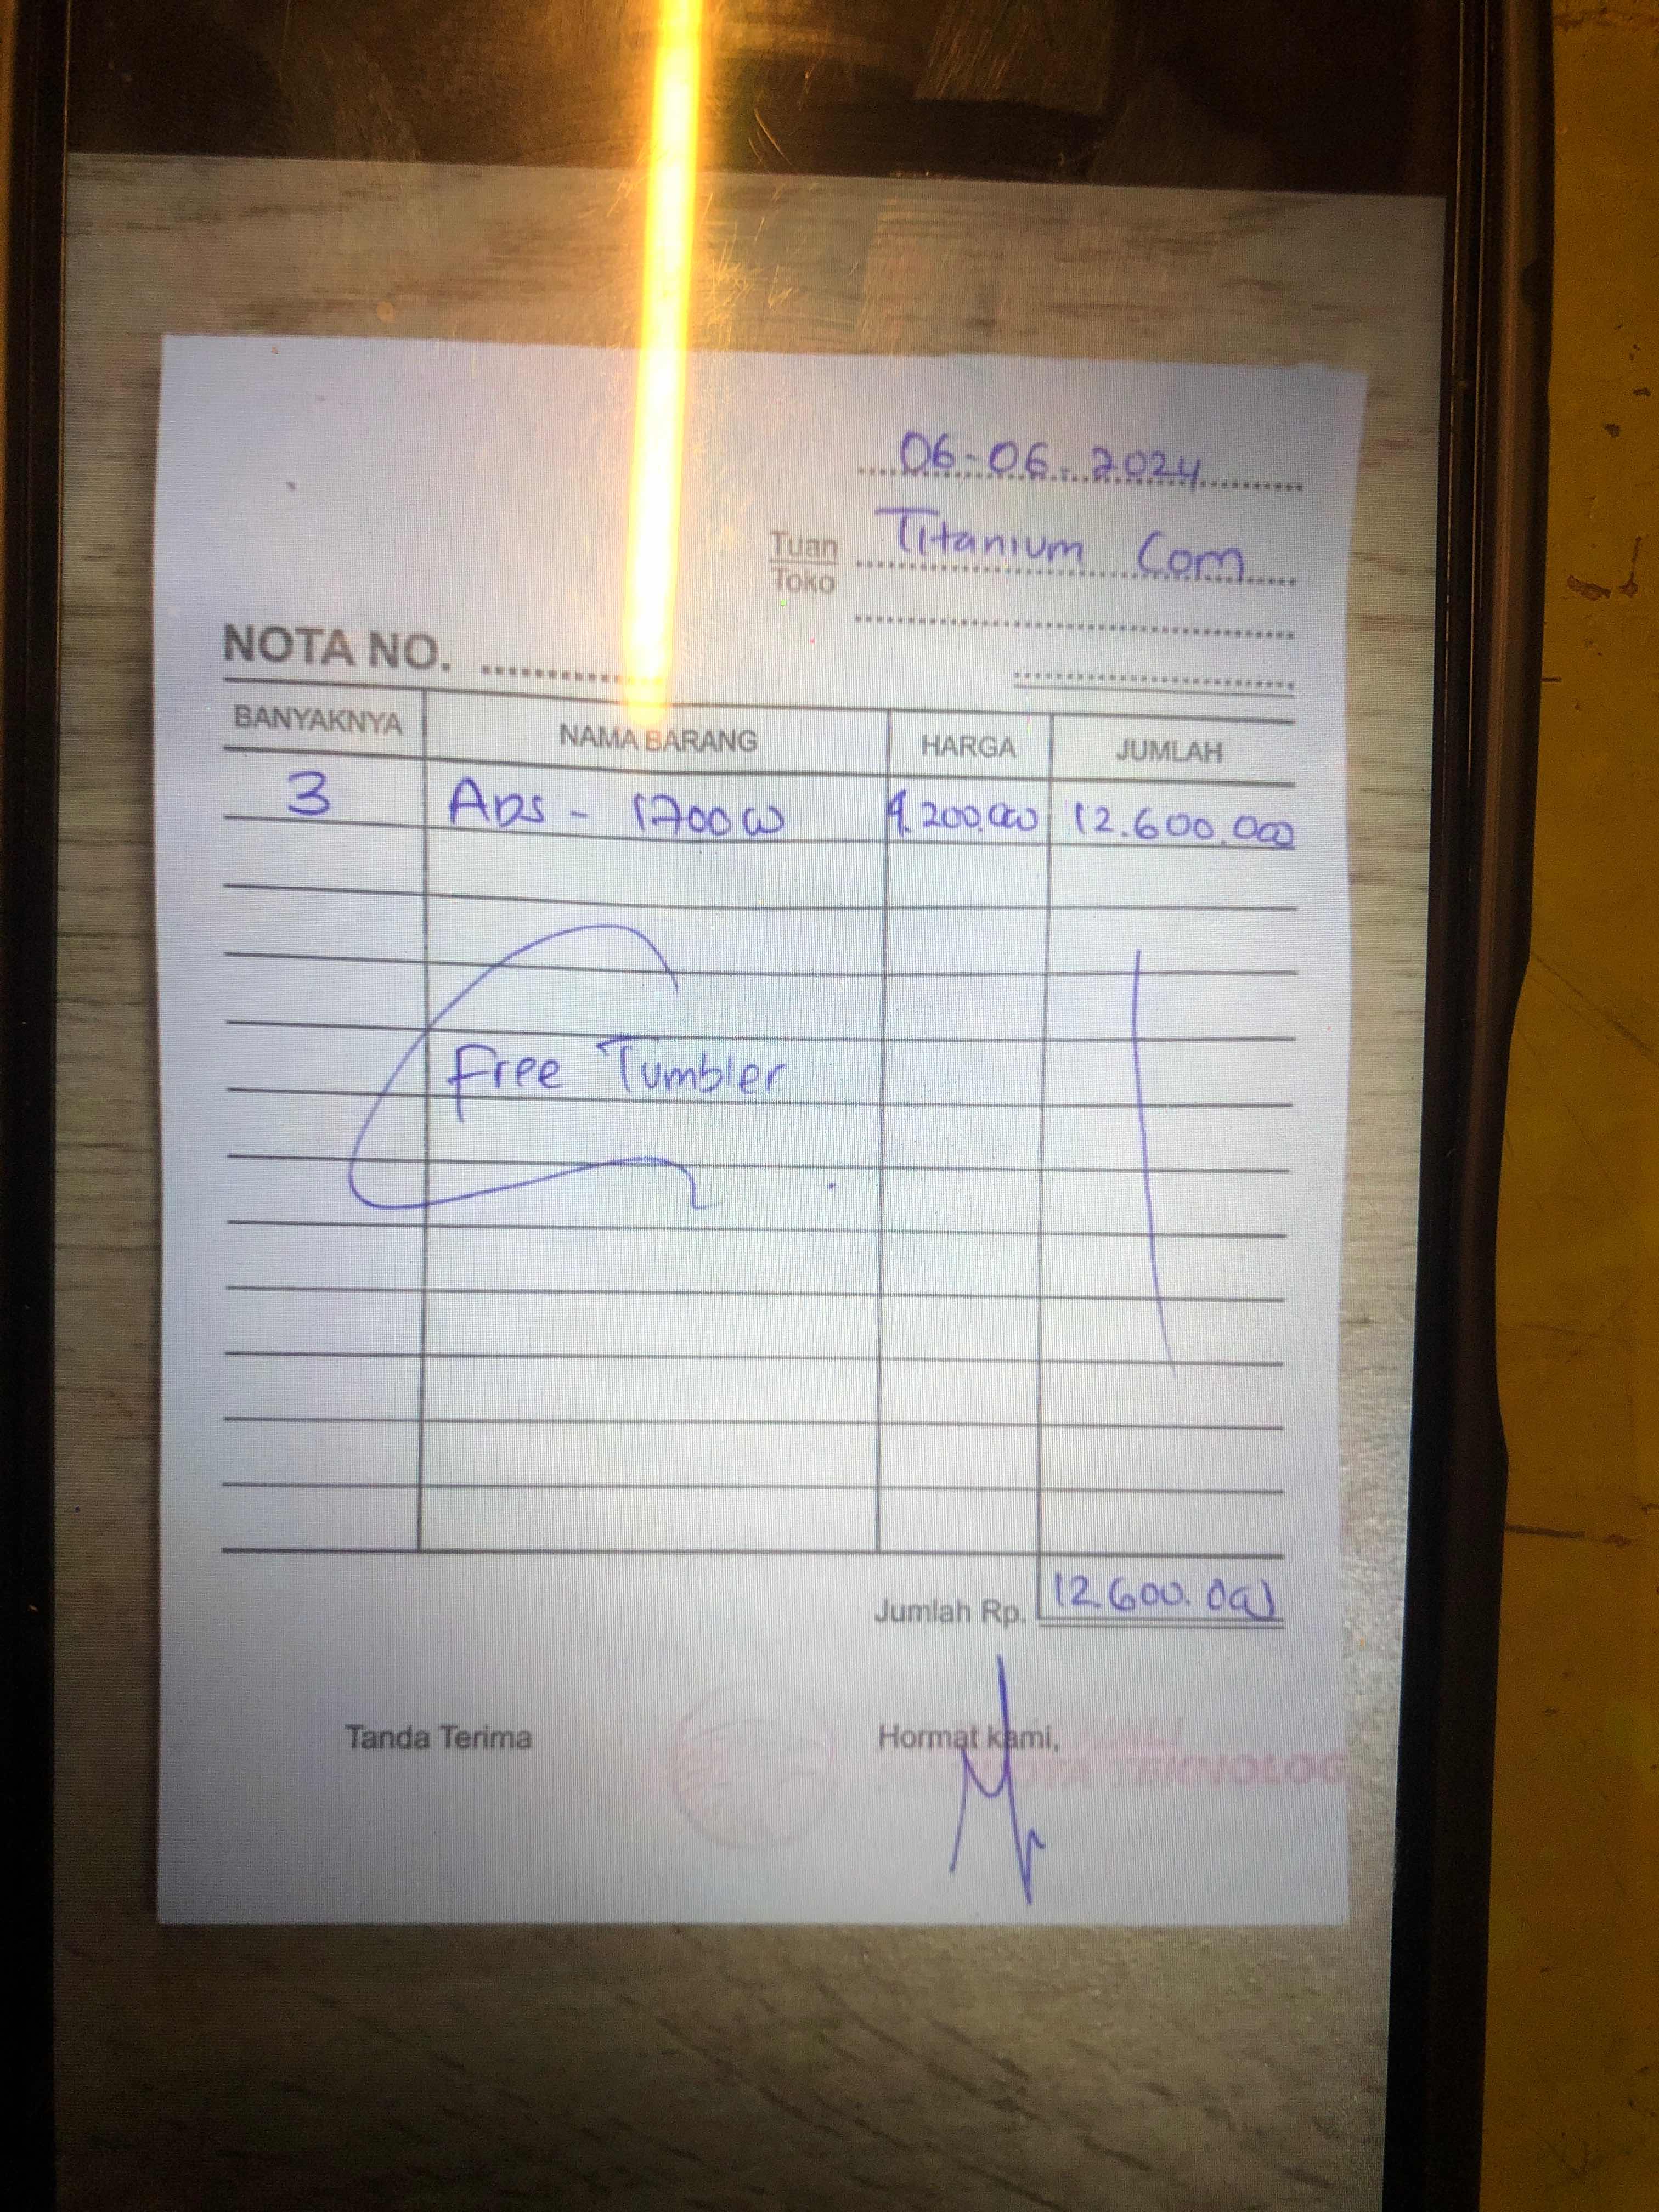 06-06-2024
Tuan Titanium Com
Toko
NOTA NO.
BANYAKNYA NAMA BARANG HARGA JUMLAH
3 ADS - 1700W 4.200.000 12.600.000
Free Tumbler
Jumlah Rp. 12.600.000
Tanda Terima Hormat kami,
TEKNOLOG